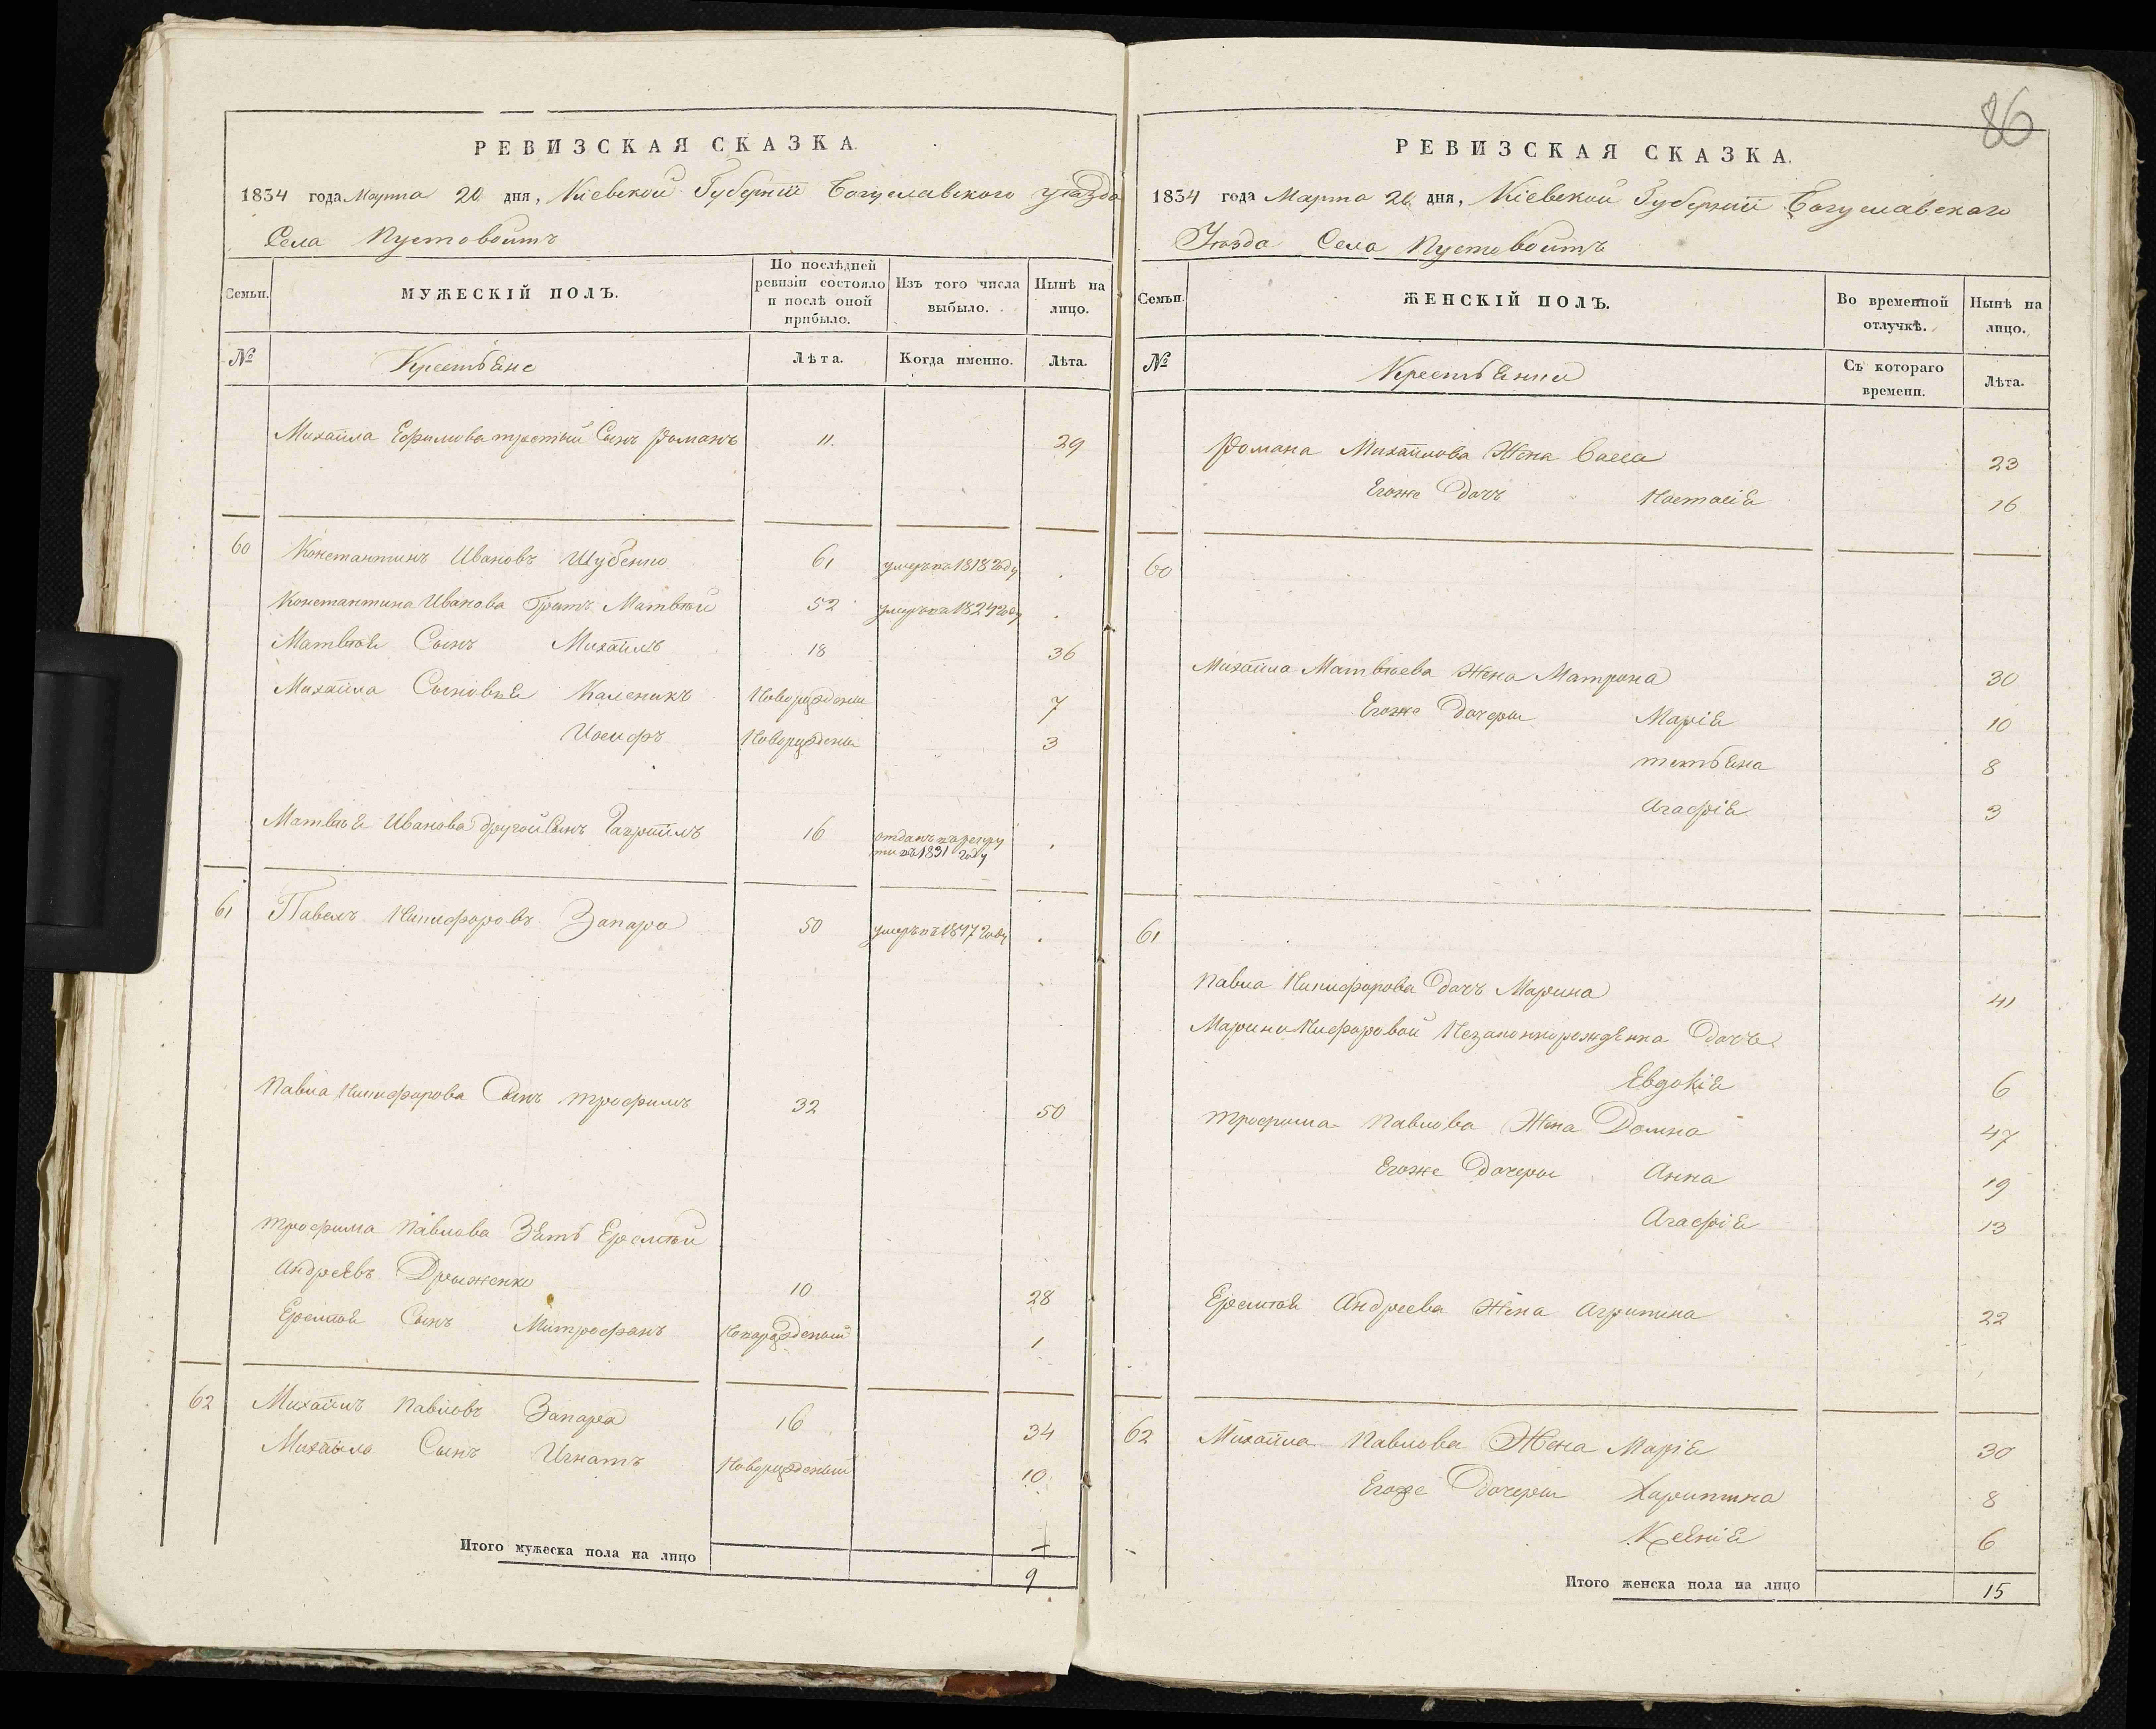 РЕВИЗСКАЯ СКАЗКА.
1834 года Марта 20 дня, Кіевской Губерніи Богуславского уезда
Села Пустовоитъ
Семьи. МУЖЕСКІЙ ПОЛЪ. По послѣдней ревизіи состояло и послѣ оной прибыло. Изъ того числа выбыло. Нынѣ на лицо.
№ Крестьяне Лѣта. Когда именно. Лѣта.
Михайла Ефимова третий Сынъ Романъ 11. 29
60 Константинъ Ивановъ Шубенко 61 умеръ въ 1818 году .
Константина Иванова Братъ Матвѣй 52 умеръ въ 1824 году .
Матвѣя Сынъ Михайлъ 18 36
Михайла Сыновья Каленикъ Новорожденны 7
Иосифъ Новорожденны 3
Матвѣя Иванова другой Сынъ Гавріилъ 16 отданъ въ рекру
ти въ 1831 году .
61 Павелъ Никифоровъ Запара 50 умеръ въ 1817 году .
Павла Никифорова Сынъ Трофимъ 32 50
Трофима Павлова Зять Еремѣй
Андреевъ Дрыженко 10 28
Еремѣя Сынъ Митрофанъ Новорожденый 1
62 Михайлъ Павловъ Запара 16 34
Михайла Сынъ Игнатъ Новорожденый 10
Итого мужеска пола на лицо 9
86
РЕВИЗСКАЯ СКАЗКА.
1834 года Марта 20 дня, Кіевской Губерніи Богуславскаго
Уѣзда Села Пустовоитъ
Семьи. ЖЕНСКІЙ ПОЛЪ. Во временной отлучкѣ. Нынѣ на лицо.
№ Крестьянки Съ котораго времени. Лѣта.
Романа Михайлова Жена Васса 23
Егоже Дочъ Настасія 16
60
Михайла Матвѣева Жена Матрона 30
Егоже Дочеры Марія 10
Татьяна 8
Агафія 3
61
Павла Никифорова Дочъ Марина 41
Марини Нифоровой Незаконнорожденна Дочъ
Евдокія 6
Трофима Павлова Жена Домна 47
Егоже Дочеры Анна 19
Агафія 13
Еремѣя Андреева Жена Агрипина 22
62 Михайла Павлова Жена Марія 30
Егоже Дочеры Харитина 8
Ксенія 6
Итого женска пола на лицо 15